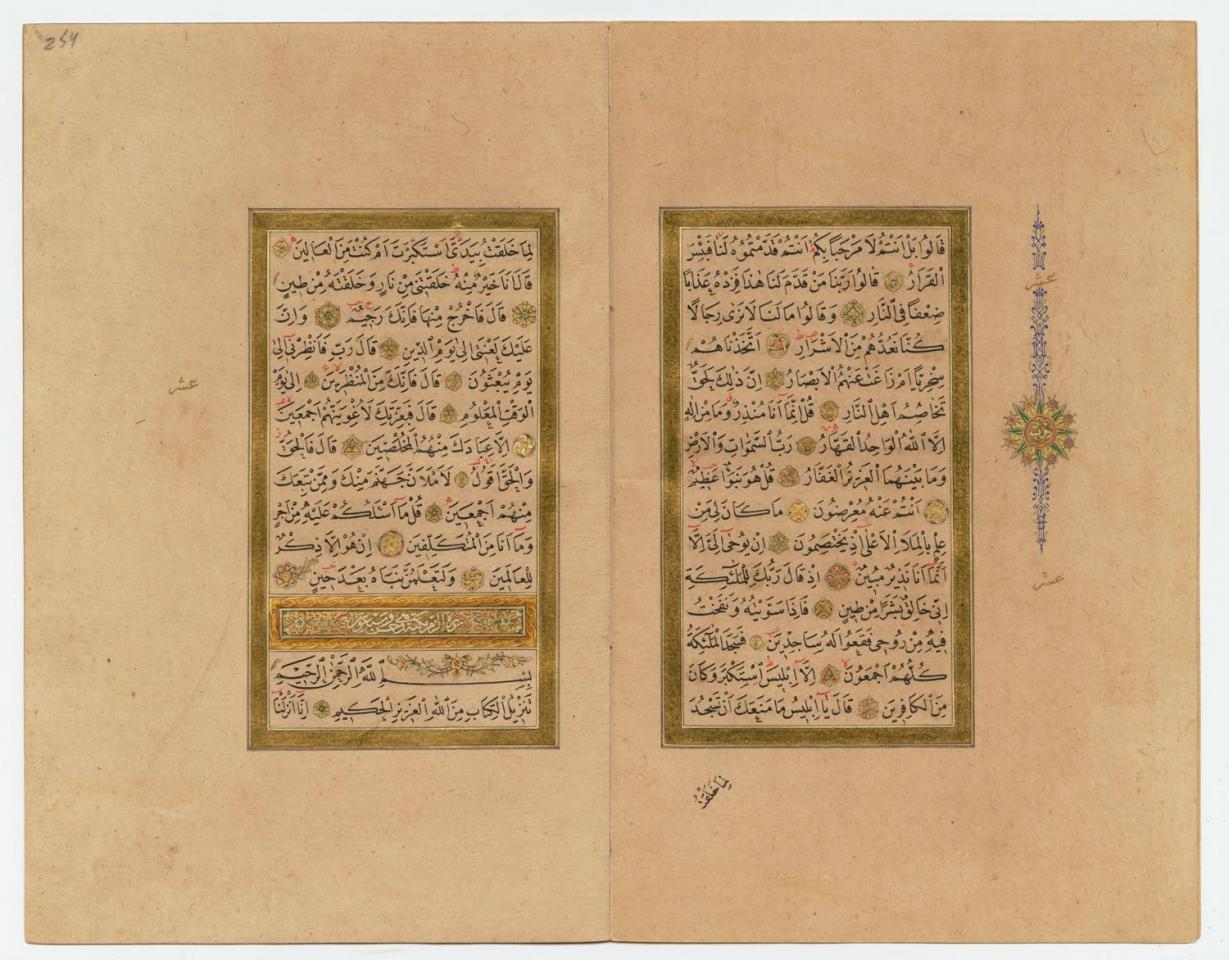 قَالُوا بَلْ اَنْتُمْ لَا مَرْحَبًا بِكُمْ اَنْتُمْ قَدَّمْتُمُوهُ لَنَا فَبِئْسَ
الْقَرَارُ قَالُوا رَبَّنَا مَنْ قَدَّمَ لَنَا هٰذَا فَزِدْهُ عَذَابًا
ضِعْفًا فِي النَّارِ وَقَالُوا مَا لَنَا لَا نَرٰى رِجَالًا
كُنَّا نَعُدُّهُمْ مِنَ الْاَشْرَارِ اَتَّخَذْنَاهُمْ
سِخْرِيًّا اَمْ زَاغَتْ عَنْهُمُ الْاَبْصَارُ اِنَّ ذٰلِكَ لَحَقٌّ
تَخَاصُمُ اَهْلِ النَّارِ قُلْ اِنَّمَا اَنَا مُنْذِرٌ وَمَا مِنْ اِلٰهٍ
اِلَّا اللّٰهُ الْوَاحِدُ الْقَهَّارُ رَبُّ السَّمٰوَاتِ وَالْاَرْضِ
وَمَا بَيْنَهُمَا الْعَزِيزُ الْغَفَّارُ قُلْ هُوَ نَبَؤٌا عَظِيمٌ
اَنْتُمْ عَنْهُ مُعْرِضُونَ مَا كَانَ لِيَ مِنْ
عِلْمٍ بِالْمَلَاِ الْاَعْلٰى اِذْ يَخْتَصِمُونَ اِنْ يُوحٰى اِلَيَّ اِلَّا
اَنَّمَا اَنَا نَذِيرٌ مُبِينٌ اِذْ قَالَ رَبُّكَ لِلْمَلٰئِكَةِ
اِنِّي خَالِقٌ بَشَرًا مِنْ طِينٍ فَاِذَا سَوَّيْتُهُ وَنَفَخْتُ
فِيهِ مِنْ رُوحِي فَقَعُوا لَهُ سَاجِدِينَ فَسَجَدَ الْمَلٰئِكَةُ
كُلُّهُمْ اَجْمَعُونَ اِلَّا اِبْلِيسَ اسْتَكْبَرَ وَكَانَ
مِنَ الْكَافِرِينَ قَالَ يَا اِبْلِيسُ مَا مَنَعَكَ اَنْ تَسْجُدَ
لِمَا خَلَقْتُ
عشر
عشر
لِمَا خَلَقْتُ بِيَدَيَّ اَسْتَكْبَرْتَ اَمْ كُنْتَ مِنَ الْعَالِينَ
قَالَ اَنَا خَيْرٌ مِنْهُ خَلَقْتَنِي مِنْ نَارٍ وَخَلَقْتَهُ مِنْ طِينٍ
قَالَ فَاخْرُجْ مِنْهَا فَاِنَّكَ رَجِيمٌ وَاِنَّ
عَلَيْكَ لَعْنَتِي اِلٰى يَوْمِ الدِّينِ قَالَ رَبِّ فَاَنْظِرْنِي اِلٰى
يَوْمِ يُبْعَثُونَ قَالَ فَاِنَّكَ مِنَ الْمُنْظَرِينَ اِلٰى يَوْمِ
الْوَقْتِ الْمَعْلُومِ قَالَ فَبِعِزَّتِكَ لَاُغْوِيَنَّهُمْ اَجْمَعِينَ
اِلَّا عِبَادَكَ مِنْهُمُ الْمُخْلَصِينَ قَالَ فَالْحَقُّ
وَالْحَقَّ اَقُولُ لَاَمْلَاَنَّ جَهَنَّمَ مِنْكَ وَمِمَّنْ تَبِعَكَ
مِنْهُمْ اَجْمَعِينَ قُلْ مَا اَسْئَلُكُمْ عَلَيْهِ مِنْ اَجْرٍ
وَمَا اَنَا مِنَ الْمُتَكَلِّفِينَ اِنْ هُوَ اِلَّا ذِكْرٌ
لِلْعَالَمِينَ وَلَتَعْلَمُنَّ نَبَاَهُ بَعْدَ حِينٍ
بِسْمِ اللّٰهِ الرَّحْمٰنِ الرَّحِيمِ
تَنْزِيلُ الْكِتَابِ مِنَ اللّٰهِ الْعَزِيزِ الْحَكِيمِ اِنَّا اَنْزَلْنَا
عشر
254